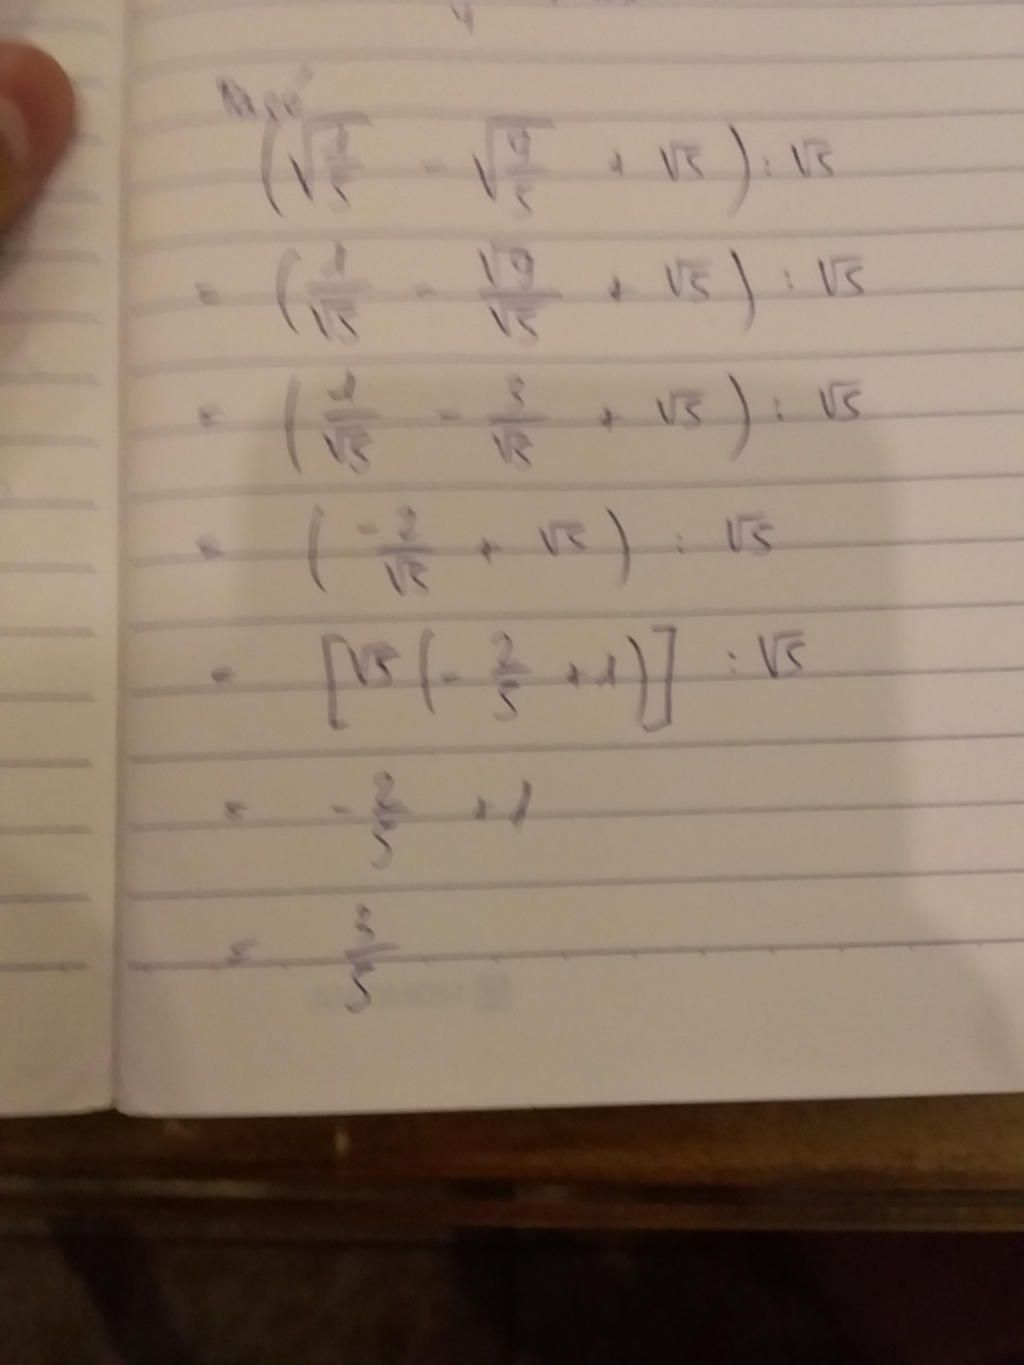 (√1/5 - √9/5 + √5) : √5
= (1/√5 - √9/√5 + √5) : √5
= (1/√5 - 3/√5 + √5) : √5
= (-2/√5 + √5) : √5
= [√5(-2/5 + 1)] : √5
= -2/5 + 1
= 3/5